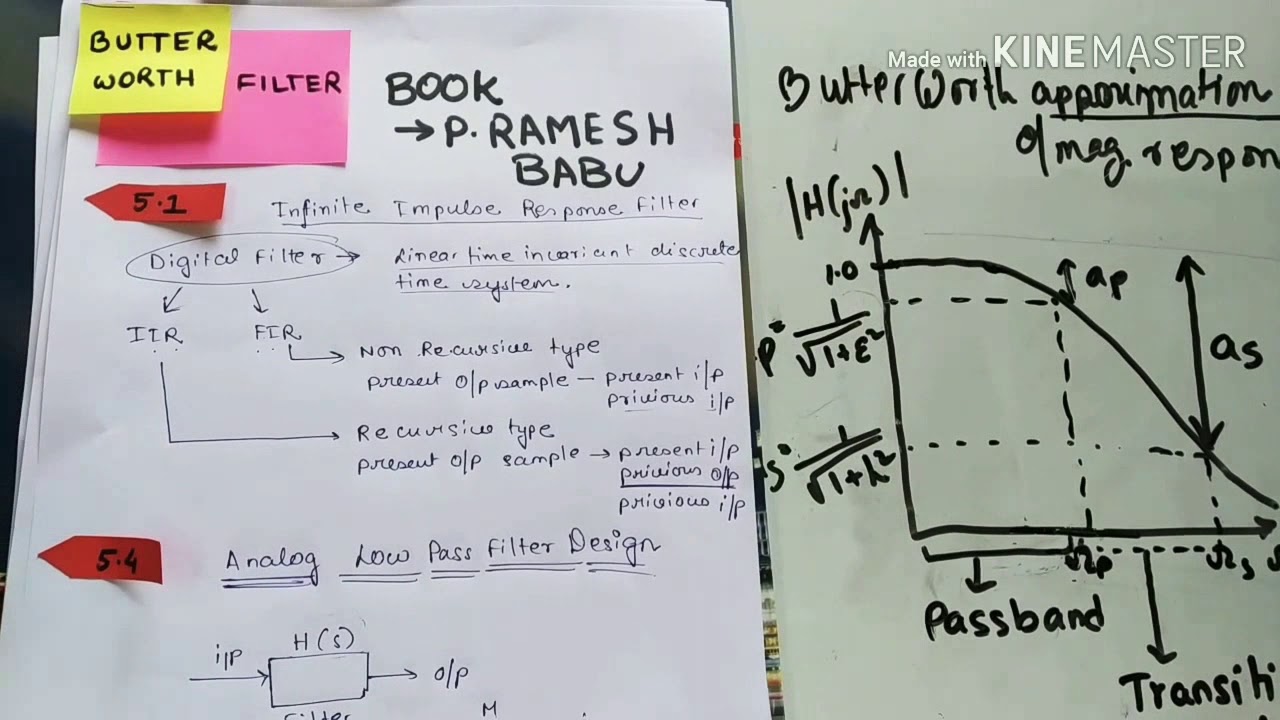 BUTTER
WORTH
FILTER
BOOK
→ P. RAMESH
BABU
5.1
Infinite Impulse Response Filter
Digital Filter → Linear time invariant discrete
time system.
IIR FIR
Non Recursive type
present o/p sample – present i/p
privious i/p
Recursive type
present o/p sample → present i/p
privious o/p
privious i/p
5.4
Analog Low Pass Filter Design
i/p H(s) o/p
Filter
M
Made with KINEMASTER
ButterWorth approximation
of mag. respon
|H(jΩ)|
1.0
ap
1/√1+ε²
as
1/√1+λ²
Ωp Ωs
Passband
Transiti